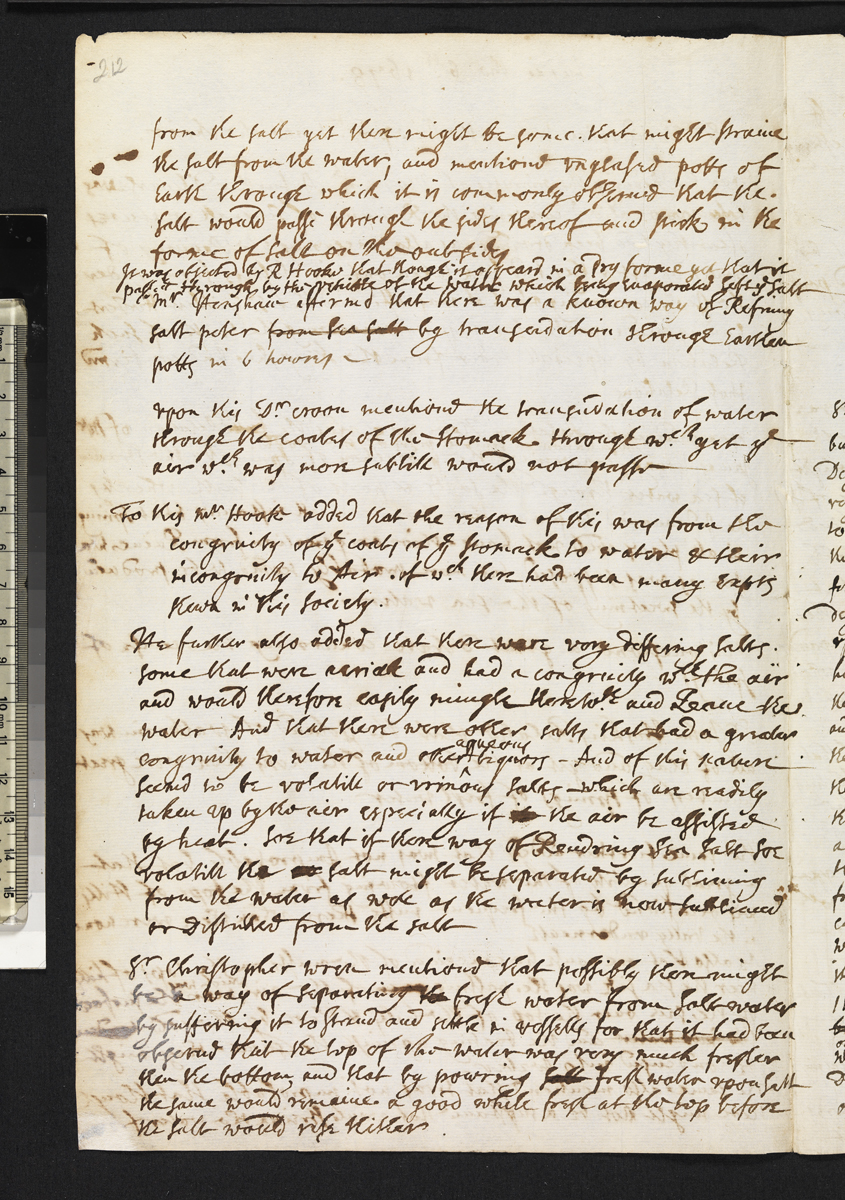 212
from the salt yet there might be some. that might straine
the salt from the water, and mentiond unglased potts of
Earth through which it is commonly observed that the.
salt would passe through the sides thereof and stick in the
forme of salt on the outsides
It was objected by R Hooke that though it appeard in a Dry forme yet that it
passed through by the vehicle of the water which being evaporated left ye Salt
Mr. Henshaw affermd that there was a known way of Refining
salt peter from sea salt by transudation through Earthen
potts in 6 howres
upon this Dr. croon mentiond the transudation of water
through the coates of the Stomack. through wch yet ye
air wch was more subtill would not passe
To this mr Hook added that the reason of this was from the
congruity of ye coats of ye stomack to water & their
incongruity to Air. of wch there had been many Expts
shewn in this society.
He further also added that there were very differing salts.
some that were aeriall and had a congruity wth the air
and would therefore easily mingle therewth and Leave the
water And that there were other salts that had a greater
congruity to water and other aqueous Liquors - And of this nature
seemd to be volatill or urinous salts - which are readily
taken up by the air especially if it the air be assisted
by heat. Soe that if there way of Rendring Sea Salt soe
volatill the salt might be separated by subliming
from the water as wel as the water is now sublimed
or distilled from the salt
Sr. Christopher wren mentiond that possibly there might
be a way of separating the fresh water from salt water
by suffering it to stand and settle in vessells for that it had been
observd that the top of the water was very much fresher
then the bottom, and that by powring salt fresh water upon salt
the same would remaine a good while fresh at the top before
the salt would rise thither.